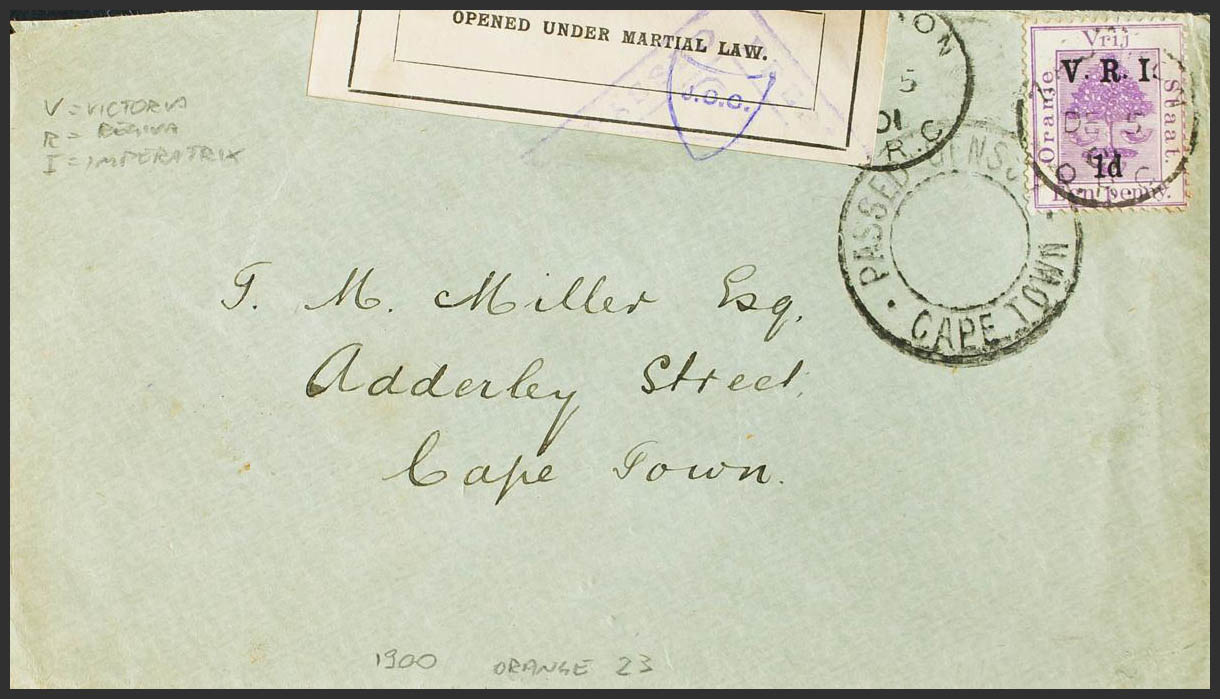 OPENED UNDER MARTIAL LAW.
J.C.C.
ON
5
01
R.C
PASSED CENSOR
CAPE TOWN
Vrij
Oranje
Staat.
V. R. I.
1d
Een penny.
DE 5
O R C
V = VICTORIA
R = REGINA
I = IMPERATRIX
T. M. Miller Esq.
Adderley Street,
Cape Town.
1900 ORANGE 23